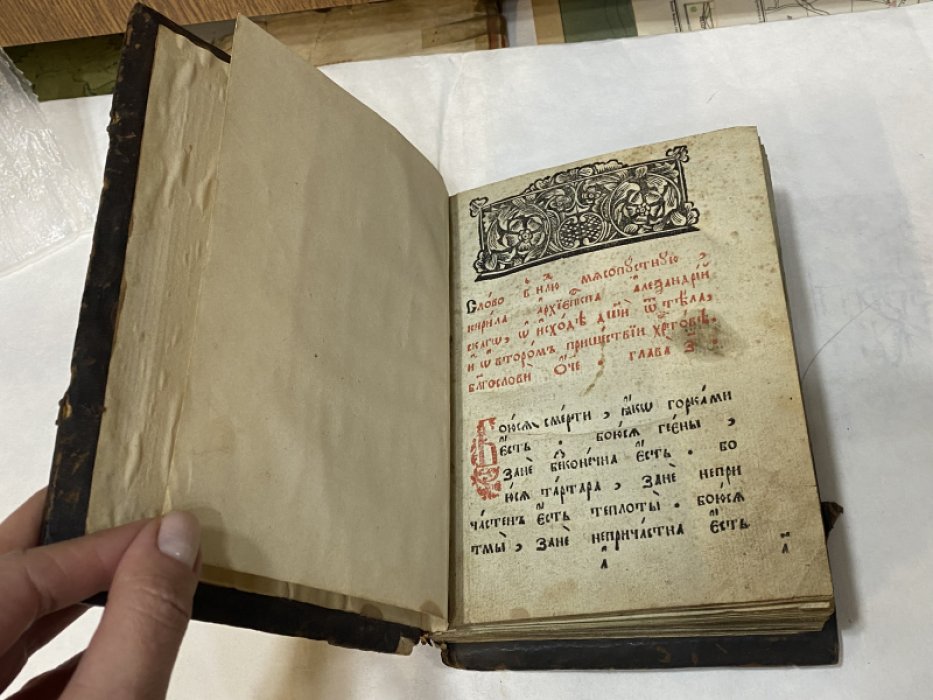 Сло́во в̾ нлю мѧсопу́стную ,
кири́ла а҆рхїепⷭ҇кпа а҆леѯандрі́й
скагѡ , ѡ҆ и҆схо́дѣ дш҃и ѿ тѣ́ла ,
и҆ ѡ҆ второ́мъ прише́ствїи хрⷭ҇то́вѣ .
бл҃гослови̇̀ ѻ҆́ч҃е . глава̀ з҃ .
Бою́сѧ сме́рти , ꙗ҆́кѡ горка́ ми
є҆́сть . бою́сѧ гее́ны ,
занѐ без̾коне́чна є҆́сть . бо
ю́сѧ та́ртара , занѐ непри
ча́стенъ є҆́сть теплоты̀ . бою́сѧ
тмы̀ , занѐ неприча́стна є҆́сть
а҃